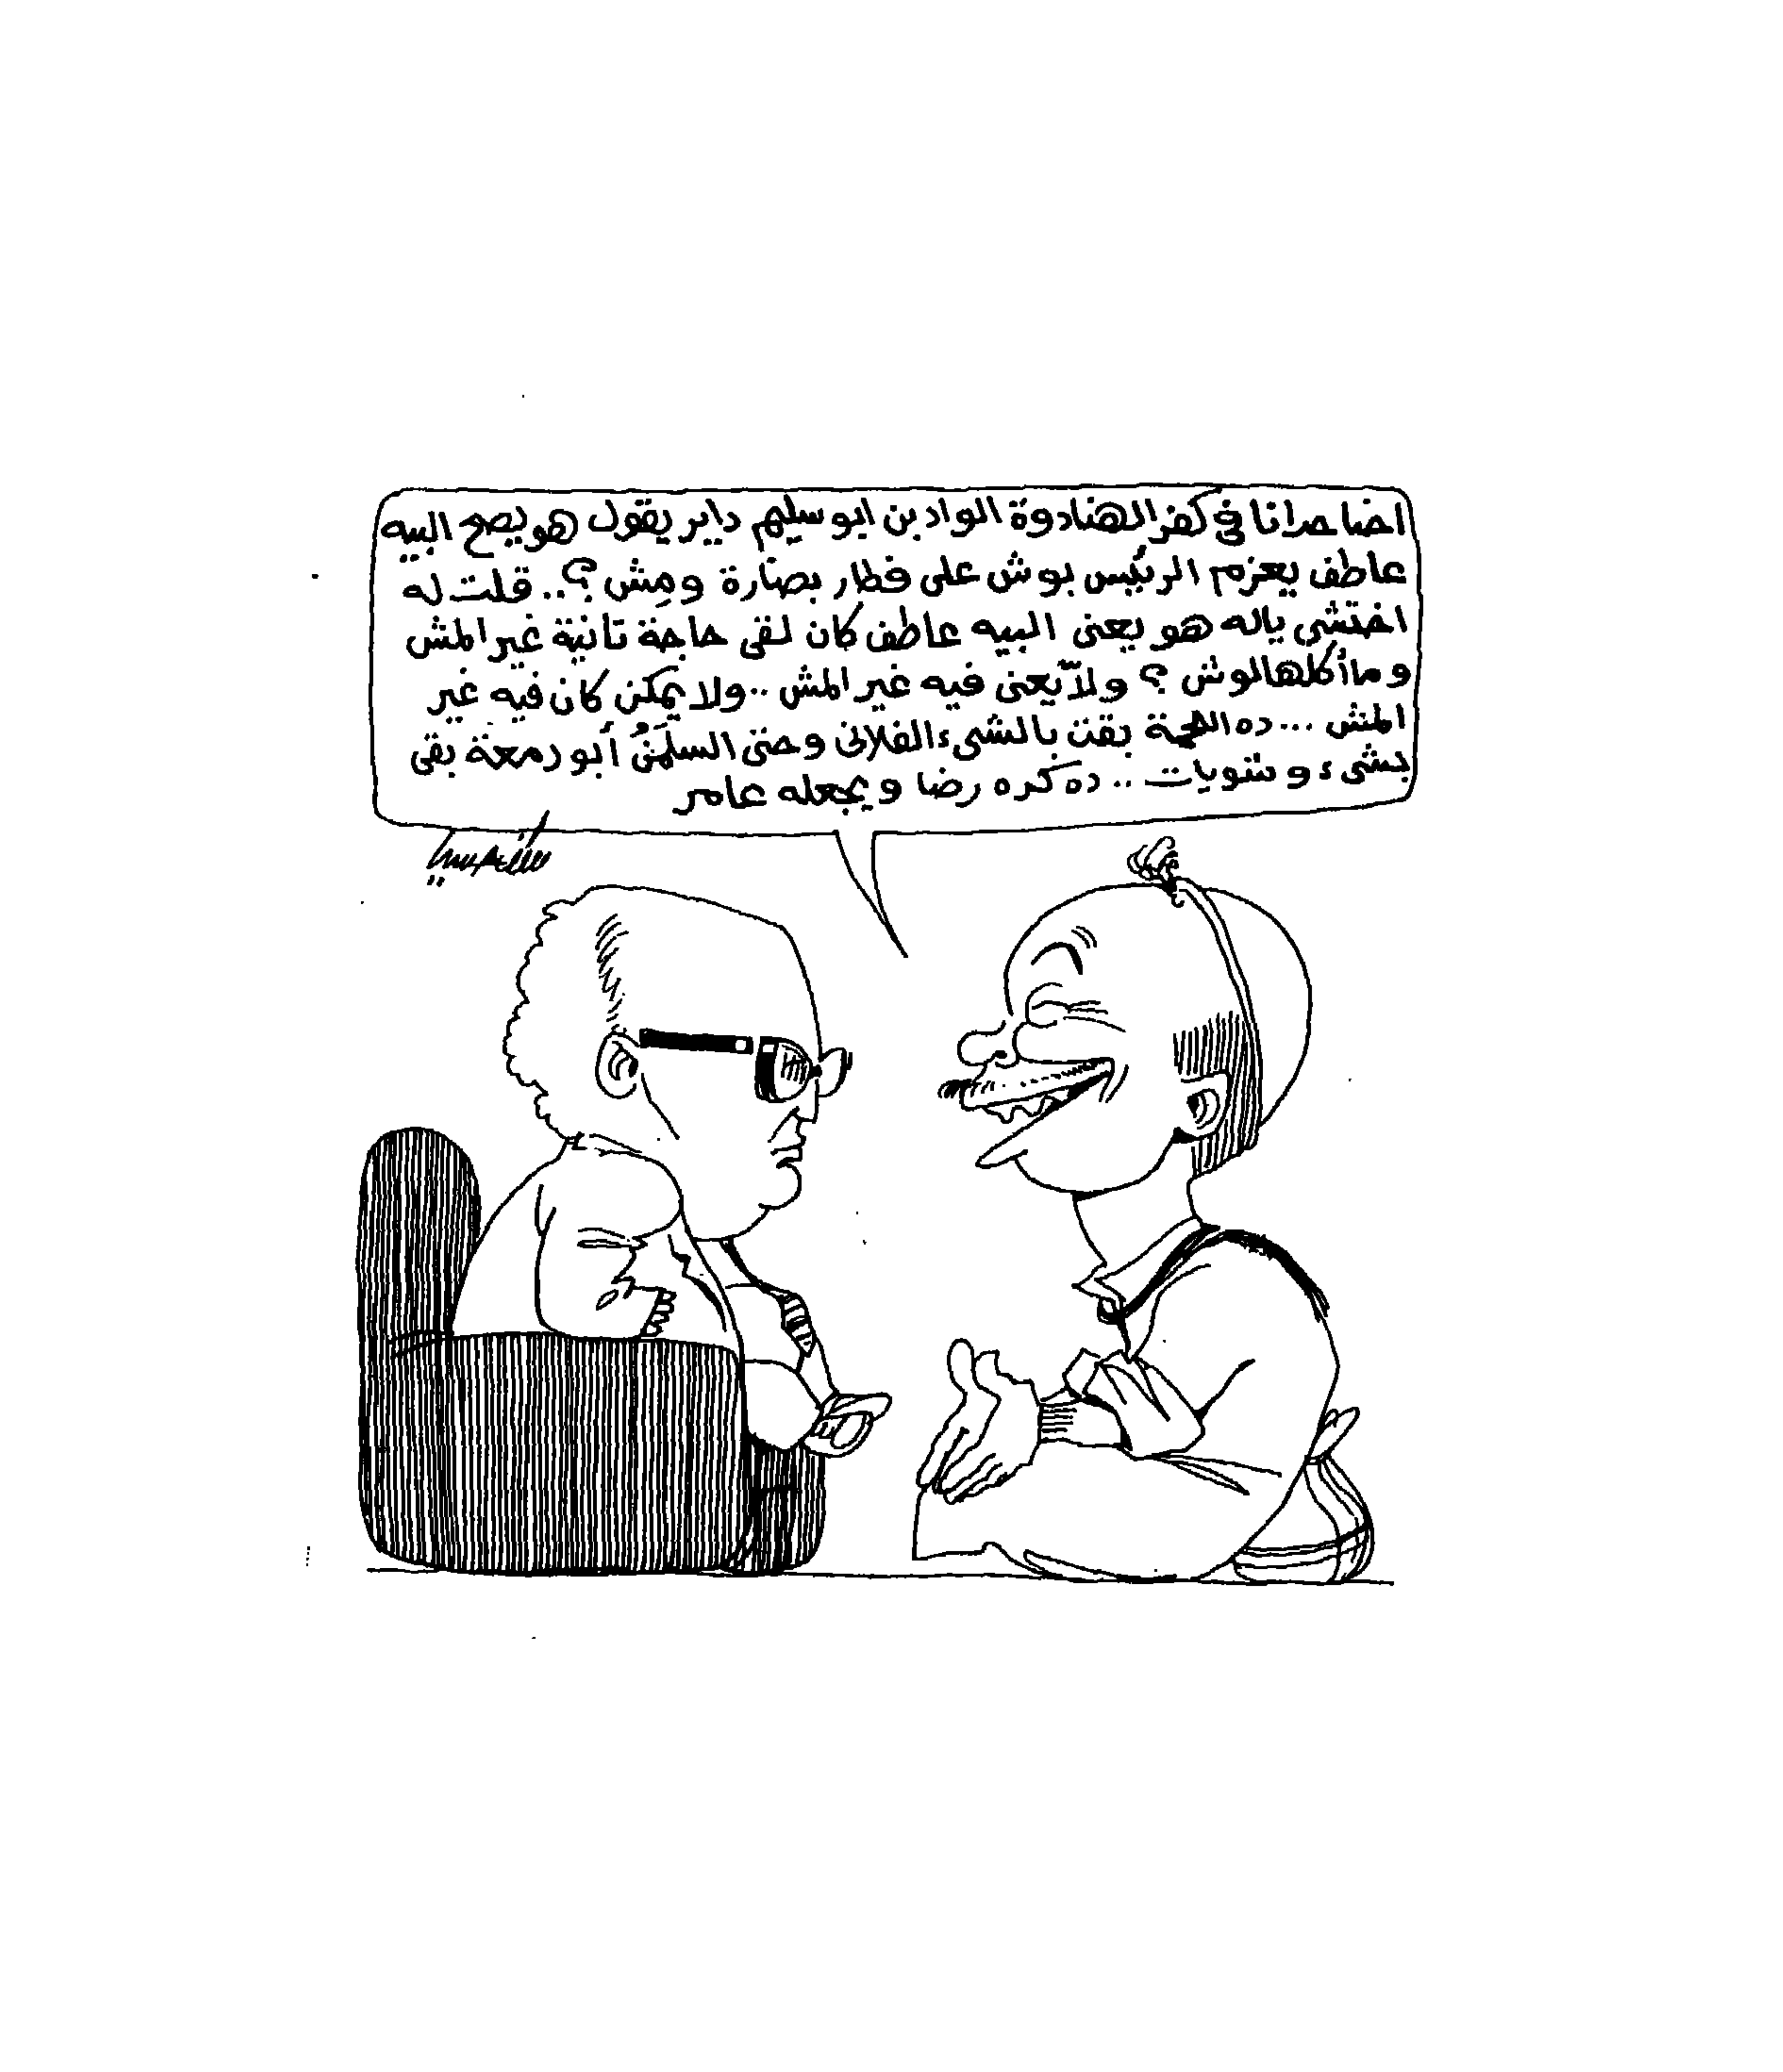 احنا صرانا في كفر الهنادوة الواد بن ابو سليم داير يقول هو يصح البيه
عاطف يعزم الرئيس بوش على فطار بصارة ومِش ؟.. قلت له
اختشى ياله هو يعنى البيه عاطف كان لقى حاجة تانية غير المش
وما أكلهالوش ؟ ولاّ يعنى فيه غير المش .. ولا يمكن كان فيه غير
المش ... ده اللحمة بقت بالشىء الفلانى وحتى السلمُنْ أبو دمعة بقى
بشىء وشويات .. ده كره رضا ويجعله عامر